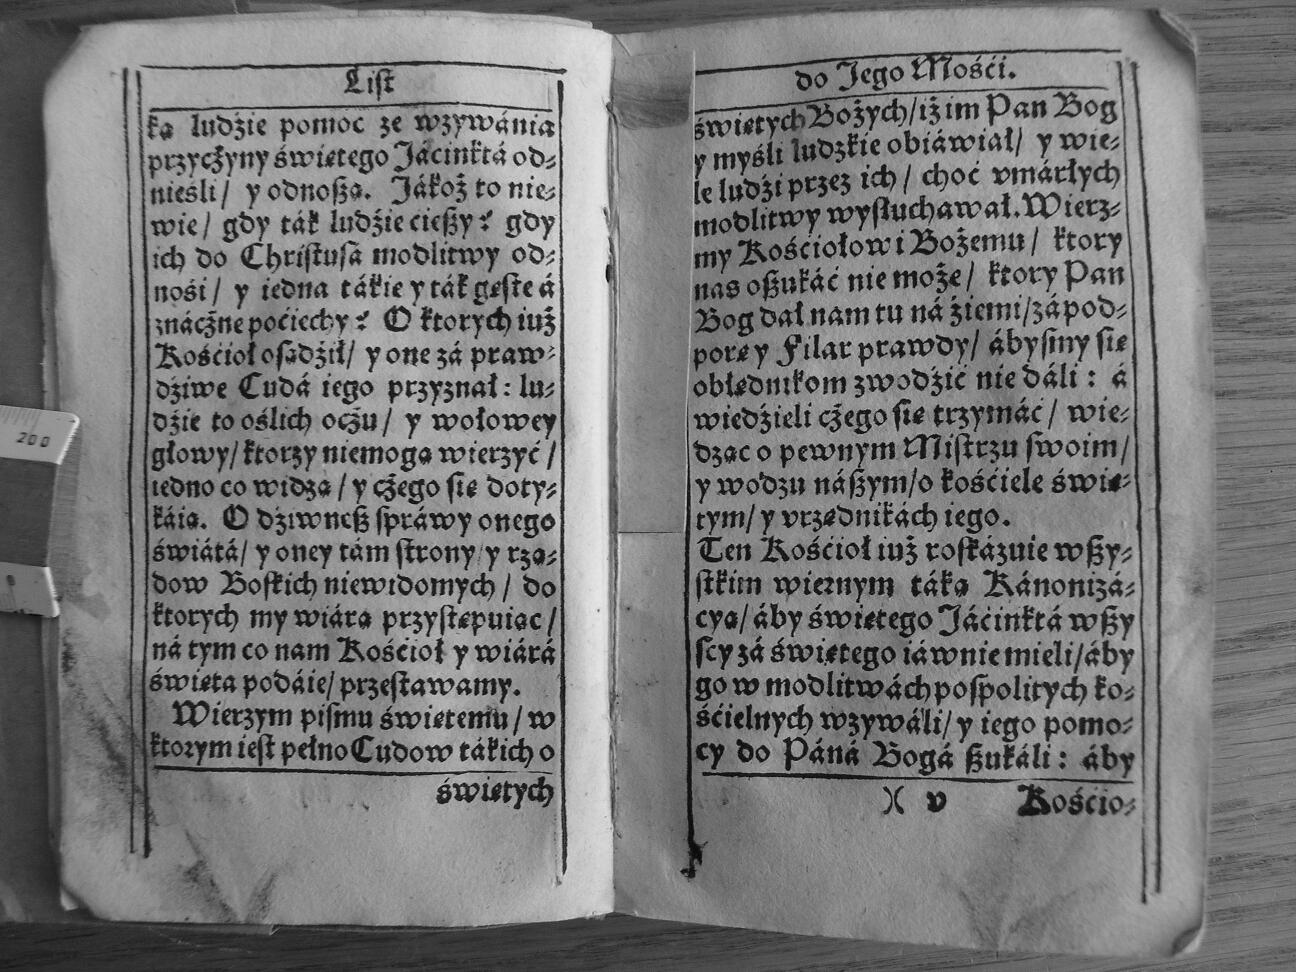 List
ką ludźie pomoc ze wzywánia
przyczyny świętego Jácinktá od-
nieśli / y odnoszą. Jákoż to nie-
wie / gdy ták ludźie cieszy ? gdy
ich do Christusá modlitwy od-
nośi / y iedna tákie y ták gęste á
znáczne pociechy ? O ktorych iuż
Kośćioł osądźił / y one zá praw-
dźiwe Cudá iego przyznał : lu-
dźie to oślich oczu / y wołowey
głowy / ktorzy niemogą wierzyć /
iedno co widzą / y czego się doty-
káią. O dźiwnesz spráwy onego
świátá / y oney tám strony / y rzą-
dow Boskich niewidomych / do
ktorych my wiárą przystępuiąc /
ná tym co nam Kośćioł y wiárá
święta podáie / przestawamy.
Wierzym pismu świętemu / w
ktorym iest pełno Cudow tákich o
świętych
200
do Jego Mośći.
świętych Bożych / iż im Pan Bog
y myśli ludzkie obiáwiał / y wie-
le ludźi przez ich / choć vmárłych
modlitwy wysłuchawał. Wierz-
my Kośćiołowi Bożemu / ktory
nas oszukáć nie może / ktory Pan
Bog dał nam tu ná źiemi / zá pod-
porę y Filar prawdy / ábysmy się
obłędnikom zwodźić nie dáli : á
wiedźieli czego się trzymáć / wie-
dząc o pewnym Mistrzu swoim /
y wodzu nászym / o kośćiele świę-
tym / y vrzędnikách iego.
Ten Kośćioł iuż roskázuie wszy-
stkim wiernym táką Kánonizá-
cyą / áby świętego Jácinktá wszy
scy zá świętego iáwnie mieli / áby
go w modlitwách pospolitych ko-
śćielnych wzywáli / y iego pomo-
cy do Páná Bogá szukáli : áby
)( v Kośćio-